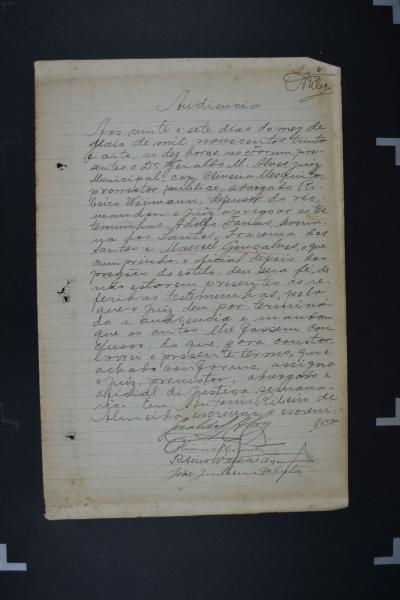 Audiencia
Aos vinte e sete dias do mez de
Maio de mil novecentos trinta
e oito, as dez horas, no Forum, pre-
sentes o Dr. Geraldo M. Alves, juiz
Municipal, cap. Oliveira Mesquita,
promotor publico, advogado Ri-
beiro Weimann, defensor do reo,
mandou o juiz apregoar as tes-
temunhas, Adolfo Farias,
dos Santos, Iracema dos
Santos e Manoel Gonçalves, o que
cumprindo, o oficial depois dos
pregões do estilo, deu sua fé, de
não estarem presentes as re-
feridas testemunhas, pelo
que o juiz deu por termina-
da a audiencia e mandou
que os autos lhe fossem con-
clusos; do que, para constar,
lavrei o presente termo, que
achado conforme, assigna
o juiz, promotor, advogado e
oficial de justiça
Eu, Ribeiro de
Almeida, escrivão, o escrevi.
João Guilherme